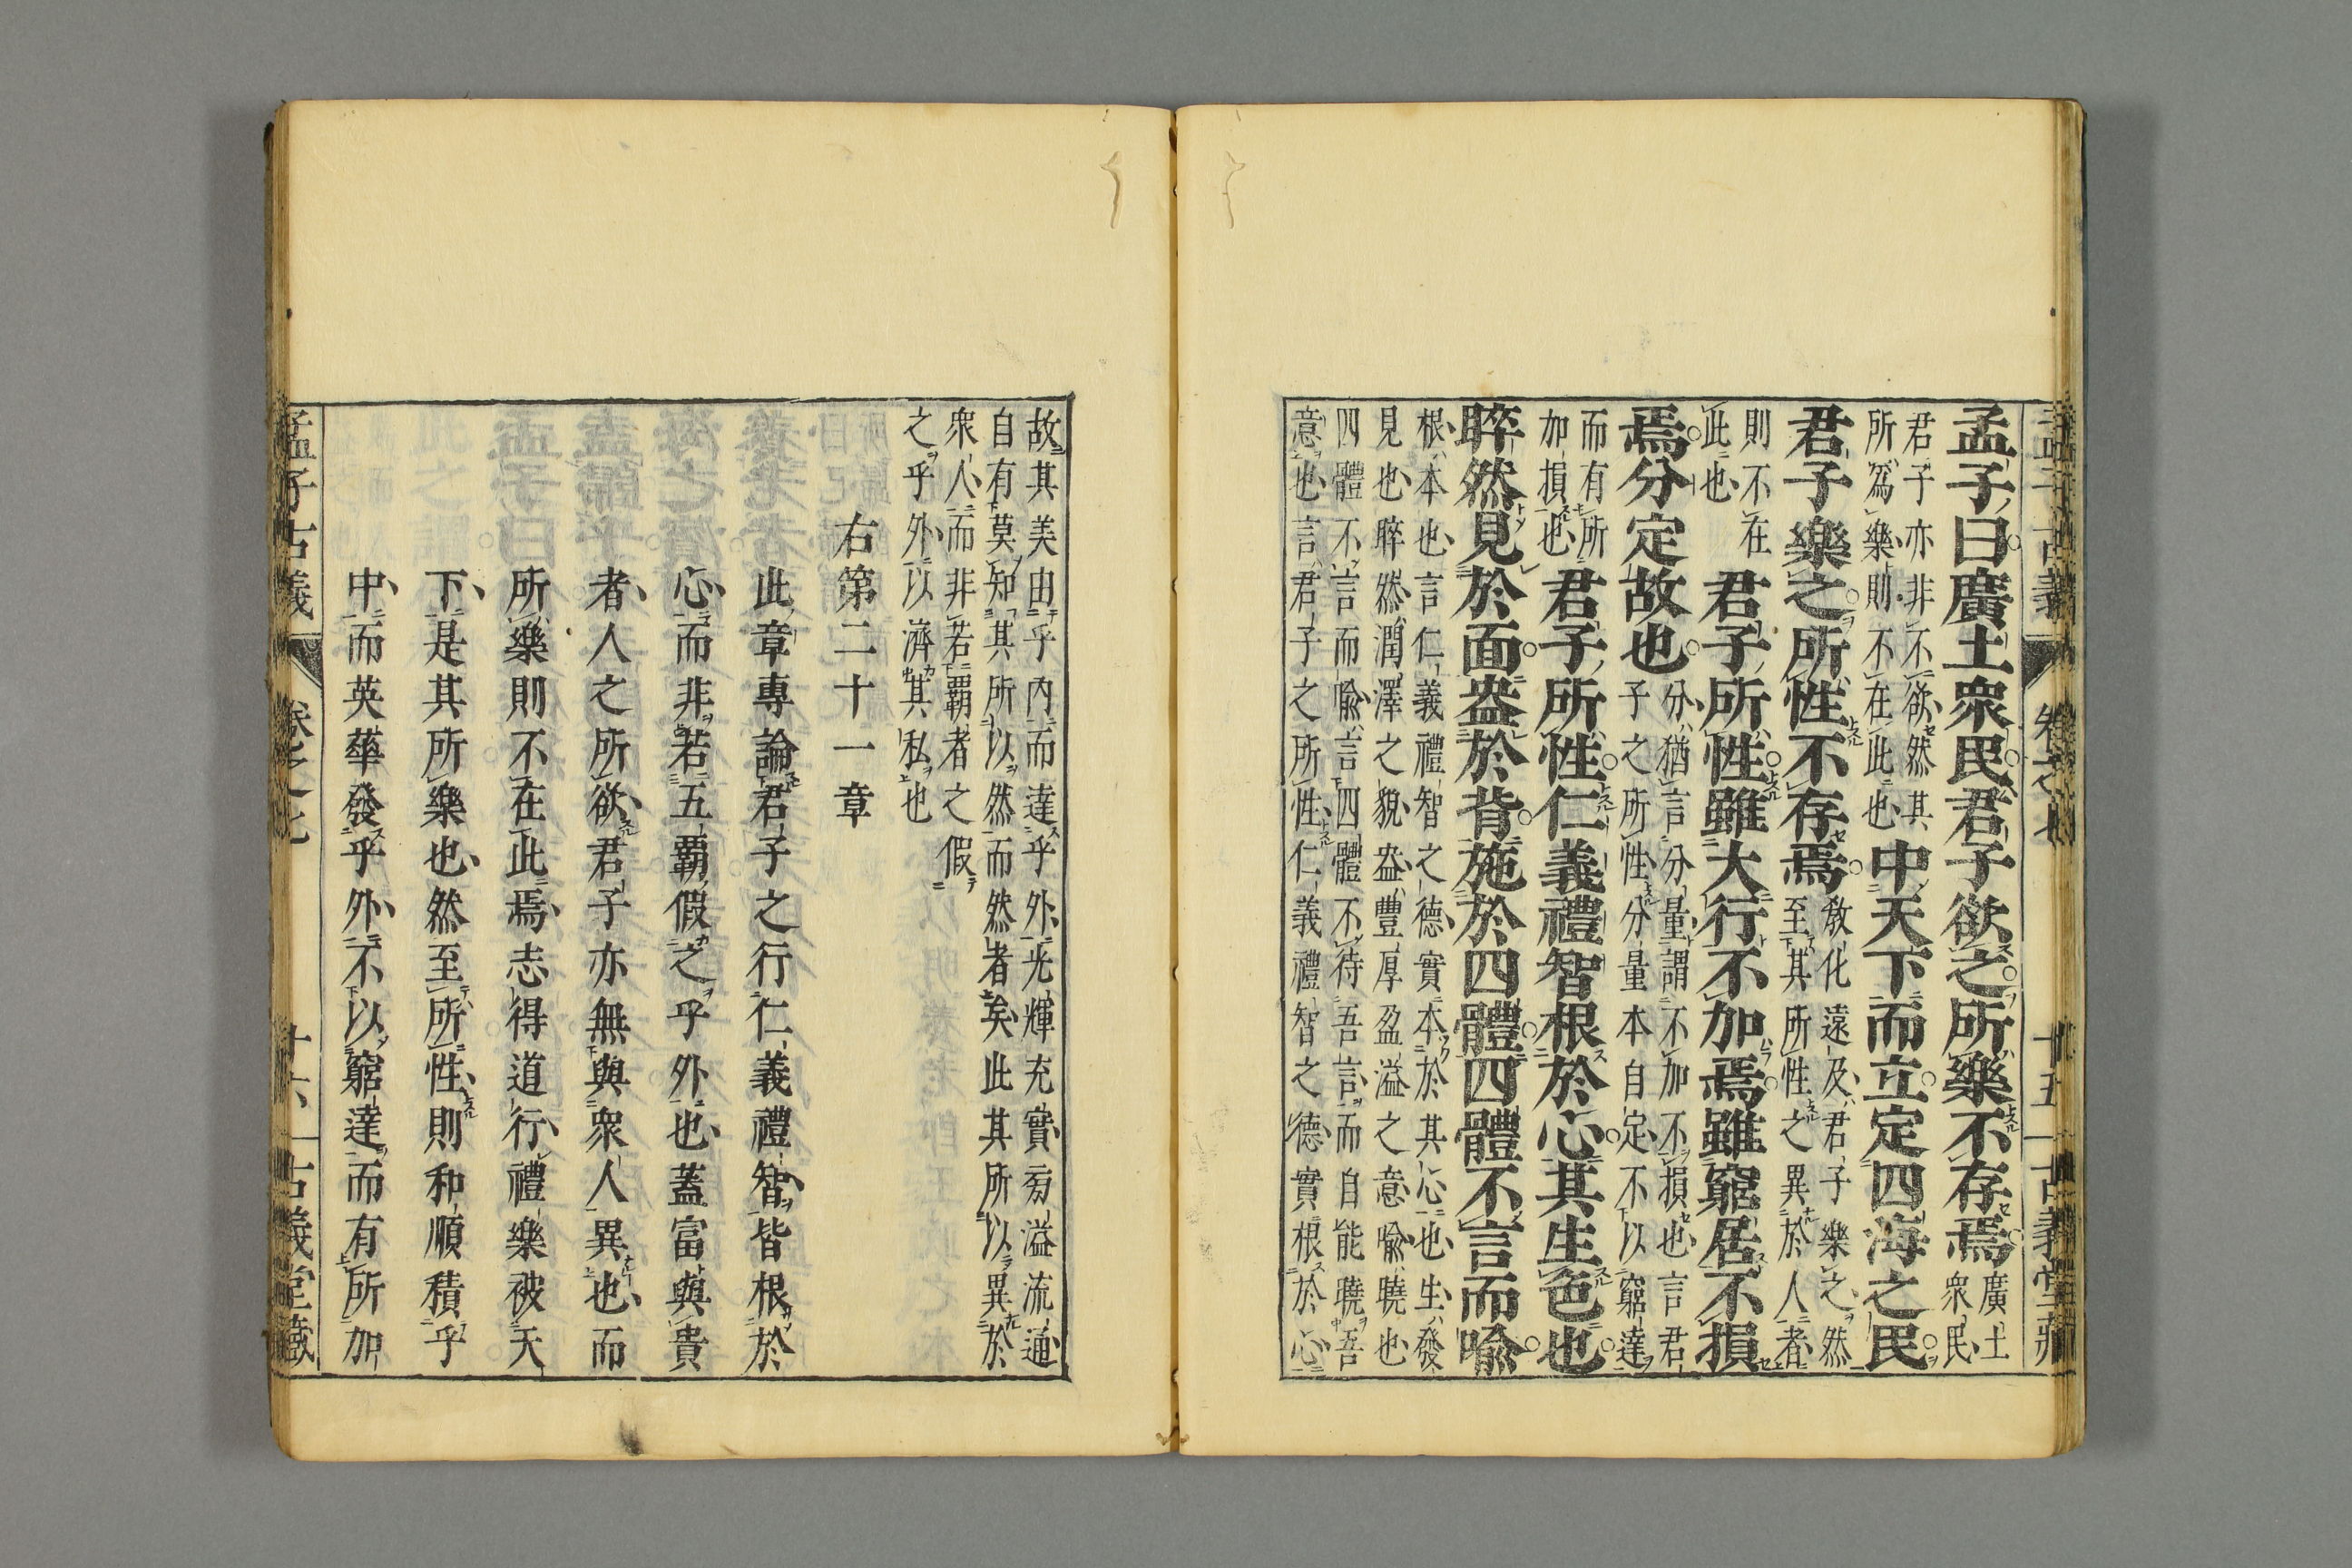 孟子古義 卷之七 十五 古義堂藏
孟子曰廣土衆民君子欲之所樂不存焉廣土
衆民
君子亦非不欲然其
所爲樂則不在此也中天下而立定四海之民
君子樂之所性不存焉教化遠及君子樂之然
至其所性之異於人者
則不在
此也君子所性雖大行不加焉雖窮居不損
焉分定故也分猶言分量謂不加不損也言君
子之所性分量本自定不以窮達
而有所
加損也君子所性仁義禮智根於心其生色也
睟然見於面盎於背施於四體四體不言而喻
根本也言仁義禮智之德實本於其心也生發
見也睟然潤澤之貌盎豐厚盈溢之意喻曉也
四體不言而喻言四體不待吾言而自能曉吾
意也言君子之所性仁義禮智之德實根於心
故其美由乎內而達乎外光輝充實旁溢流通
自有莫知其所以然而然者矣此其所以異於
衆人而非若覇者之假
之乎外以濟其私也
右第二十一章
此章專論君子之行仁義禮智皆根於
心而非若五覇假之乎外也蓋富與貴
者人之所欲君子亦無與衆人異也而
所樂則不在此焉志得道行禮樂被天
下是其所樂也然至所性則和順積乎
中而英華發乎外不以窮達而有所加
孟子古義 卷之七 十六 古義堂藏